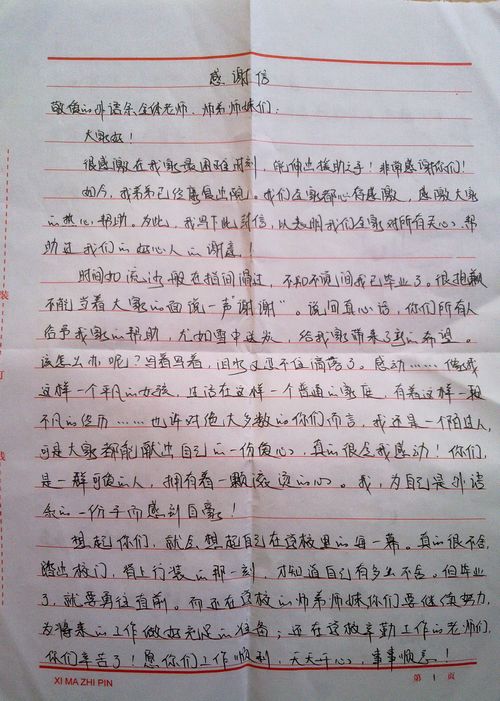 感谢信
敬爱的外语系全体老师、师弟师妹们：
大家好！
很感激在我家最困难时刻，能伸出援助之手！非常感谢你们！
如今，我弟弟已经康复出院。我们全家都心存感激，感激大家
的热心帮助。为此，我写下此封信，以表明我们全家对所有关心、帮
助过我们的好心人的谢意。
时间如流沙般在指间滑过，不知不觉间我已毕业了。很抱歉
不能当着大家的面说一声“谢谢”。说句真心话，你们所有人
给予我家的帮助，尤如雪中送炭，给我家带来了新的希望。
该怎么办呢？写着写着，泪水又忍不住滴落了。感动……像我
这样一个平凡的女孩，生活在这样一个普通的家庭，有着这样一段
不凡的经历……也许对绝大多数的你们而言，我还是一个陌生人，
可是大家都能献出自己的一份爱心，真的很令我感动！你们，
是一群可爱的人，拥有着一颗滚烫的心。我，为自己是外语
系的一份子而感到自豪！
想起你们，就会想起自己在该校里的每一幕。真的很不舍，
踏出校门，背上行装的那一刻，才知道自己有多么不舍。但毕业
了，就要勇往直前。而还在该校的师弟师妹你们要继续努力，
为将来的工作做好充足的准备；还在该校辛勤工作的老师们，
你们辛苦了！愿你们工作顺利，天天开心，事事顺意！
XI MA ZHI PIN
第 1 页
装
订
线